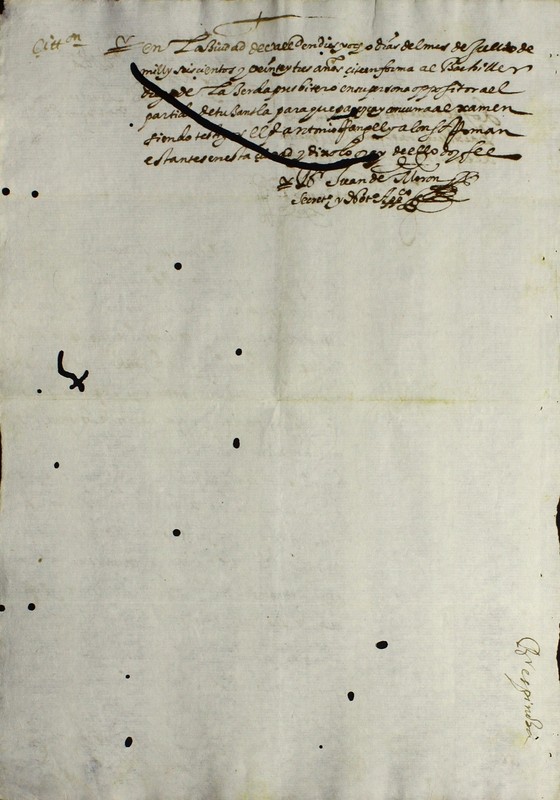 Citt.on
en la Ciudad de Vall.d en diez y ocho dias del mes de Jullio de
mill y seiscientos y veinte y tres años cite en forma al Bachiller
de la Serda presbitero en su persona oppositor al
partido de tusantla para que parezca y concurra al examen
siendo testigos el d antonio Rangel y alonso Roman
estantes en esta ciudad y dello doy fee
Juan de Moron
Secret.o y Not.o app.co